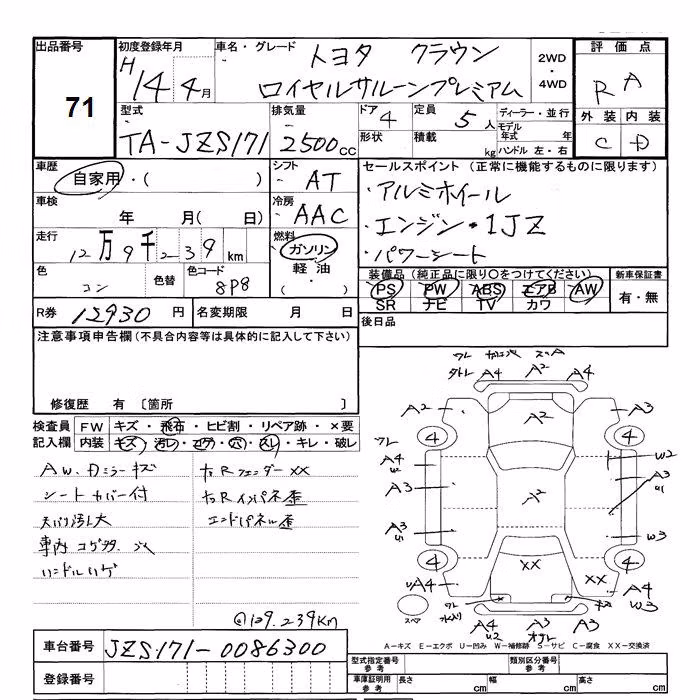 出品番号
71
初度登録年月
H14年4月
車名・グレード
トヨタ クラウン
ロイヤルサルーンプレミアム
2WD
・
4WD
評価点
RA
外装 内装
C D
型式
TA-JZS171
排気量
2500cc
ドア 4
定員 5人
形状
積載 kg
ディーラー・並行
モデル年式 年
ハンドル 左・右
車歴
自家用・( )
シフト
AT
セールスポイント (正常に機能するものに限ります)
・アルミホイール
・エンジン・1JZ
・パワーシート
車検
年 月( 日)
冷房
AAC
走行
12万9千239km
燃料
ガソリン
軽油
・( )
色
コン
色替
色コード
8P8
装備品(純正品に限り○をつけてください)
PS PW ABS エアB AW
SR ナビ TV カワ
新車保証書
有・無
R券 12930円
名変期限 月 日
後日品
注意事項申告欄(不具合内容等は具体的に記入して下さい)
修復歴 有 〔箇所
検査員 FW キズ・飛石・ヒビ割・リペア跡・×要
記入欄 内装 キズ・汚レ・コゲ・穴・スレ・キレ・破レ
AW、Dミラーキズ
右RフェンダーXX
シートカバー付
右Rインパネ歪
天バリ汚レ大
エンドパネル歪
車内コゲ
ハンドルハゲ
@129.239km
車台番号 JZS171-0086300
登録番号
A4 A2 A4
A2 A2 A3
4 4
ワレ
A4 U2
W2
A3 A2 A3 U1
A3 U1
W3
4 4
XX XX
A4 A4 W3
スペア
A4 U2 A4
A-キズ E-エクボ U-凹み W-補修跡 S-サビ C-腐食 XX-交換済
型式指定番号 参考
類別区分番号 参考
車庫証明用 参考
長さ cm
幅 cm
高さ cm